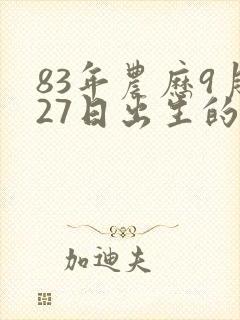 83年農歷9月
27日出生的
加迪夫